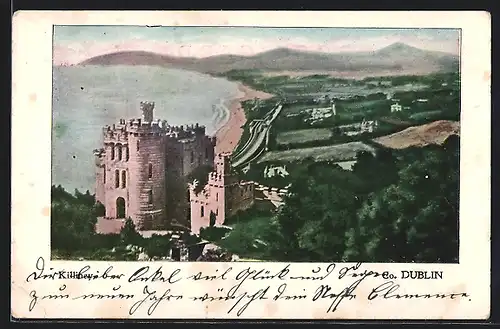 Killiney Co. DUBLIN
Dir lieber Onkel viel Glück und Segen
zum neuen Jahre wünscht dein Neffe Clemence.